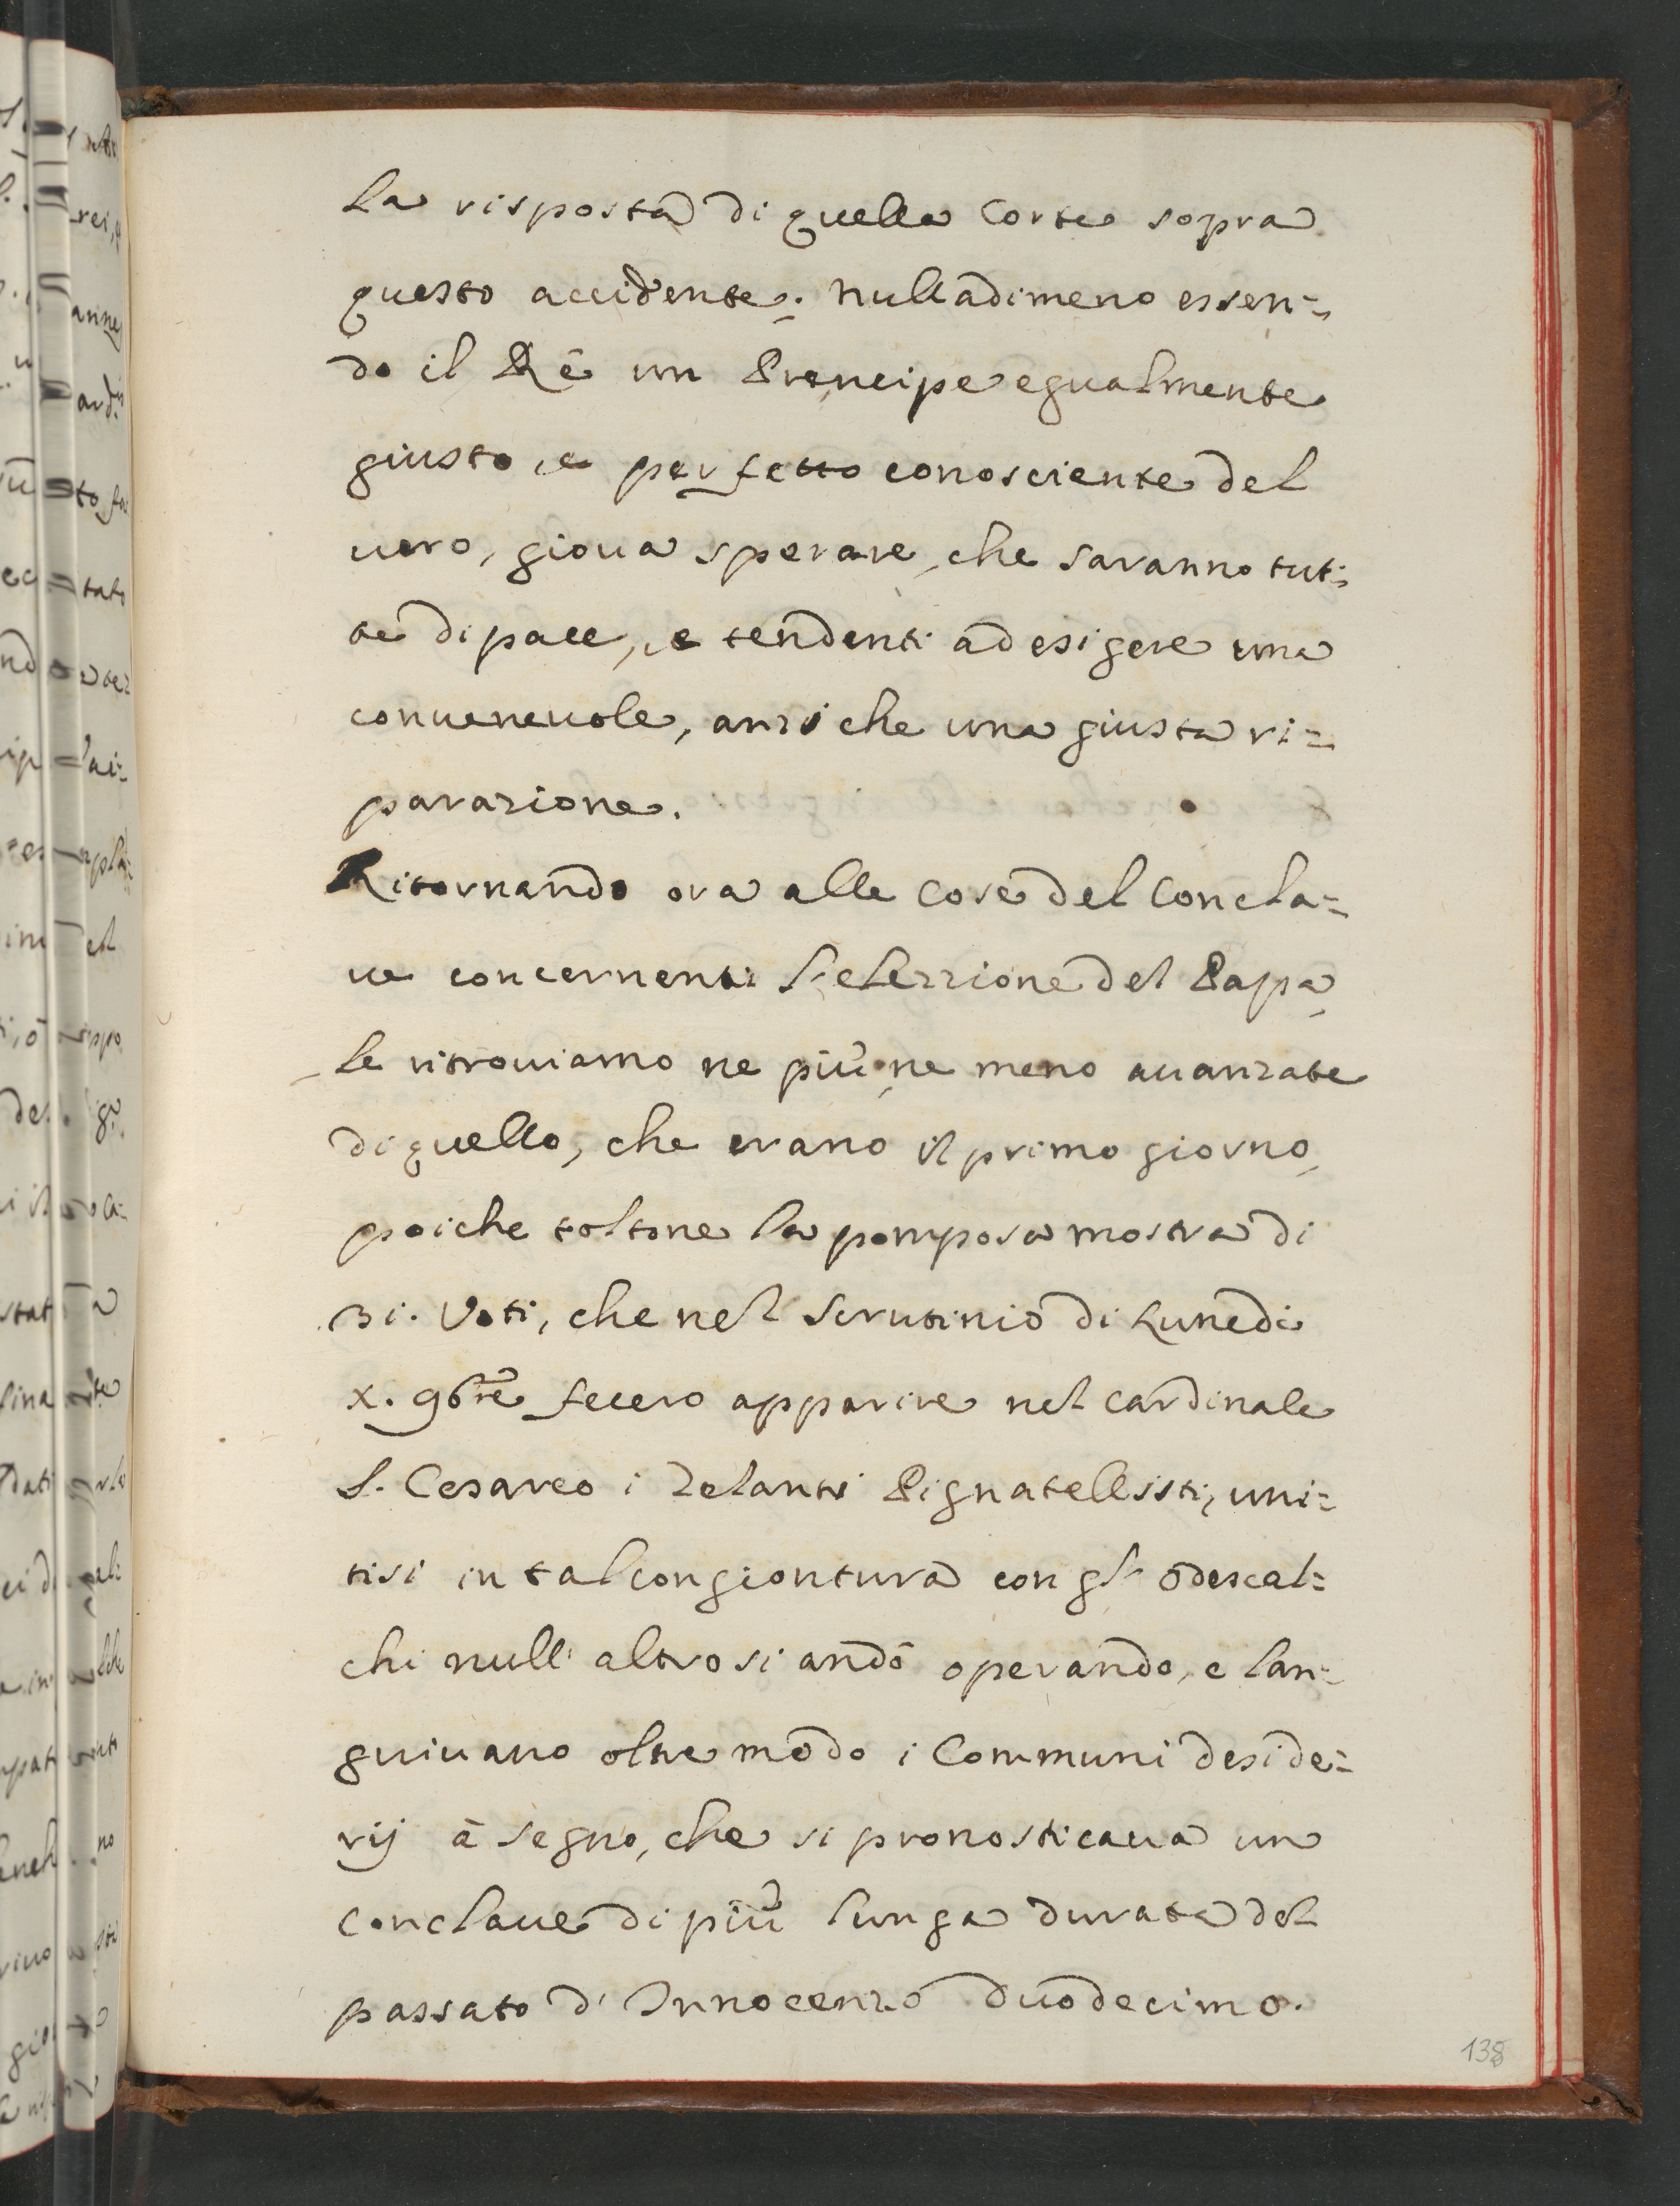 la risposta di quella Corte sopra
questo accidente. Nulladimeno essen=
do il Rè un Prencipe egualmente
giusto, e perfetto conosciente del
uero, gioua sperare, che saranno tut=
te di pace, e tendenti ad esigere una
conueneuole, anzi che una giusta ri=
parazione.
Ritornando ora alle Cose del Concla=
ue concernenti l'elezzione del Papa,
le ritrouiamo ne più, ne meno auanzate
di quello, che erano il primo giorno,
poiche toltone la pomposa mostra di
31. Voti, che nel Scrutinio di Lunedi
x. 9bre fecero apparire nel Cardinale
S. Cesareo i Zelanti Pignatellisti, uni=
tisi in tal congiontura con gl' Odescal=
chi null' altro si andò operando, e lan=
guiuano oltre modo i Communi deside=
rij à segno, che si pronosticaua un
Conclaue di più lunga durata del
passato d' Innocenzo Duodecimo.
138